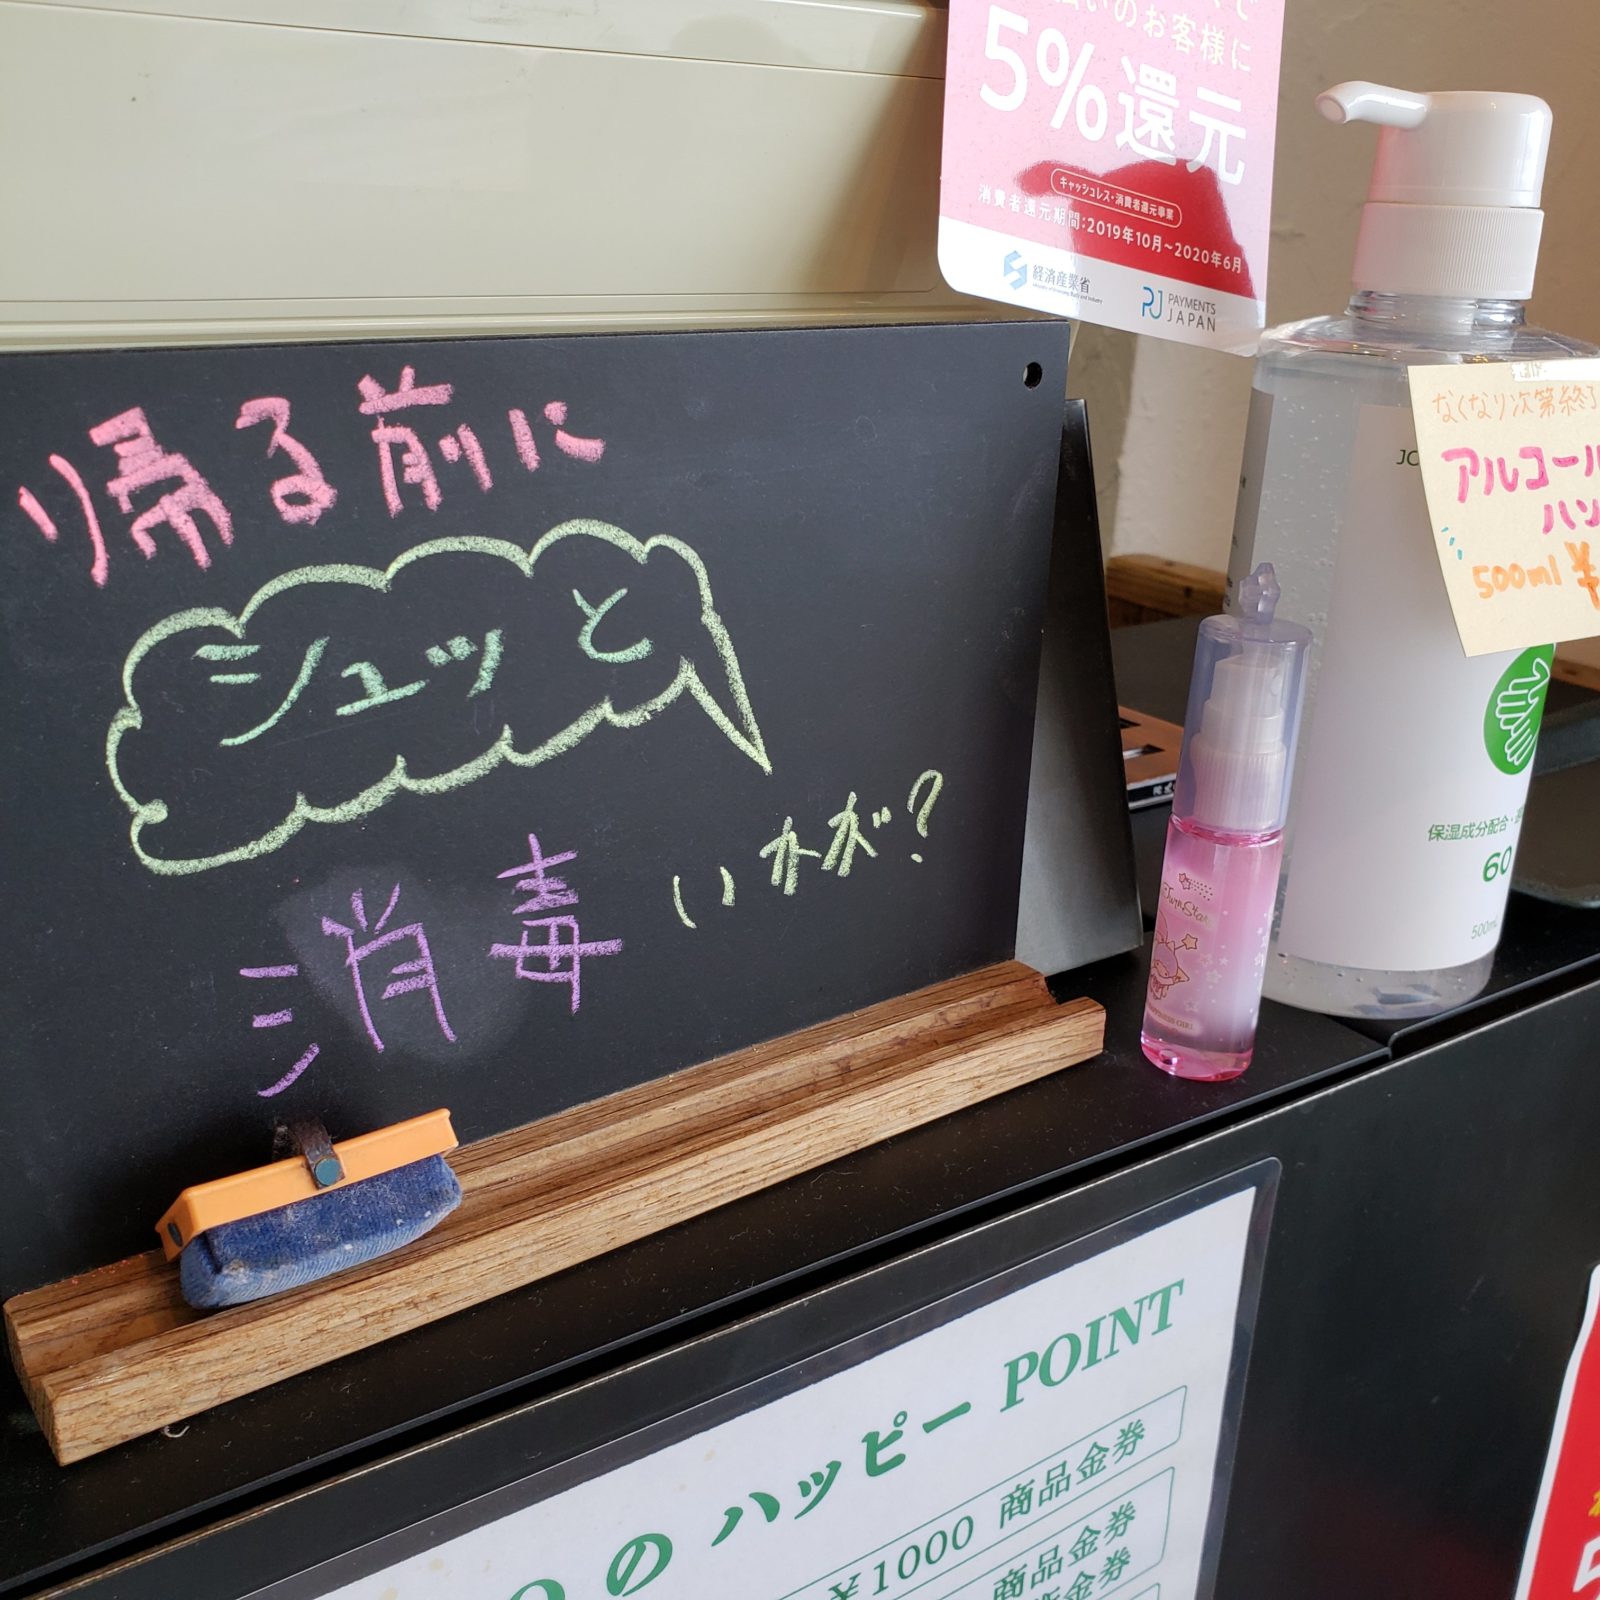 払いのお客様に
5%還元
キャッシュレス・消費者還元事業
消費者還元期間：2019年10月~2020年6月
経済産業省
PAYMENTS
JAPAN
帰る前に
シュッと
消毒
いかが?
なくなり次第終了
アルコール
ハン
500ml ¥
保湿成分配合・
60
500mL
TwinStars
のハッピー POINT
¥1000 商品金券
商品金券